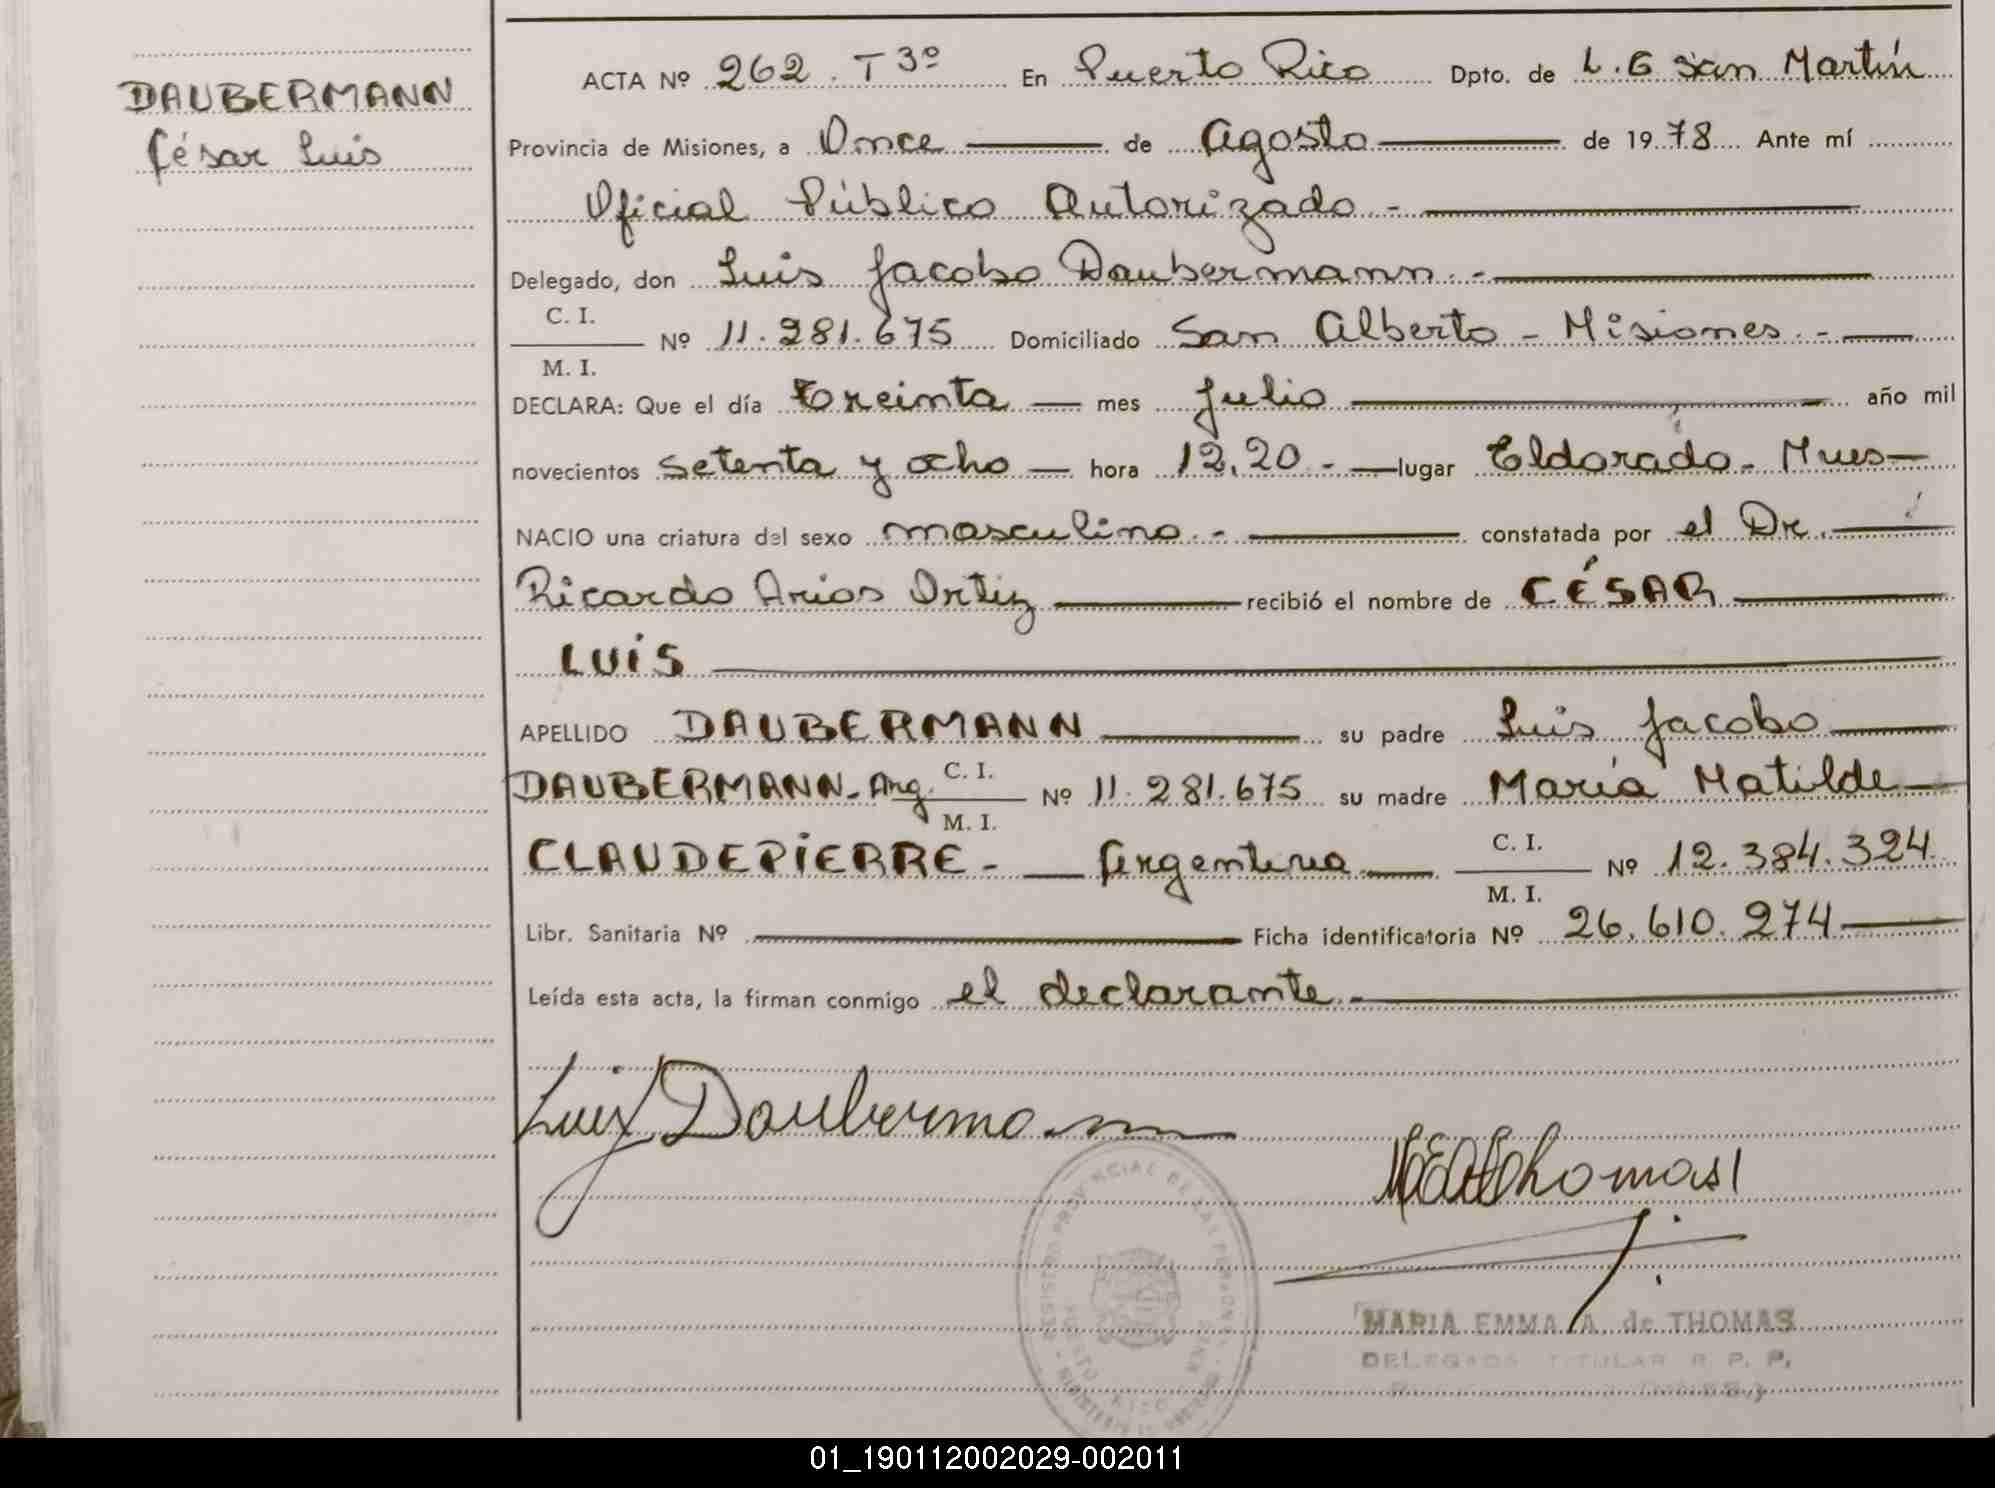 DAUBERMANN
César Luis
ACTA Nº 262. T 3º En Puerto Rico Dpto. de L. G San Martín
Provincia de Misiones, a Once de Agosto de 1978 Ante mí
Oficial Público Autorizado -
Delegado, don Luis Jacobo Daubermann.-
C. I.
Nº 11.281.675 Domiciliado San Alberto - Misiones.-
M. I.
DECLARA: Que el día treinta mes Julio año mil
novecientos setenta y ocho hora 12,20.- lugar Eldorado - Mnes
NACIO una criatura del sexo masculino.- constatada por el Dr.
Ricardo Arios Ortiz recibió el nombre de CÉSAR
LUIS
APELLIDO DAUBERMANN su padre Luis Jacobo
DAUBERMANN - Arg. C. I. Nº 11.281.675 su madre María Matilde
M. I.
CLAUDEPIERRE - Argentina C. I. Nº 12.384.324
M. I.
Libr. Sanitaria Nº Ficha identificatoria Nº 26.610.274
Leída esta acta, la firman conmigo el declarante.-
Luis Daubermann
Thomas
REGISTRO PROVINCIAL DE LAS PERSONAS
PUERTO RICO
MARIA EMMA A. de THOMAS
DELEGADA TITULAR R. P. P.
01_190112002029-002011